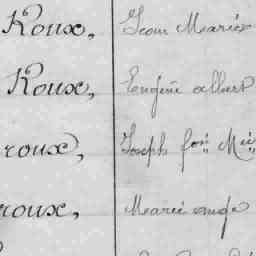 Roux, Jean Marie
Roux, Eugène albert
roux, Joseph fois Mie
roux, Marie ange